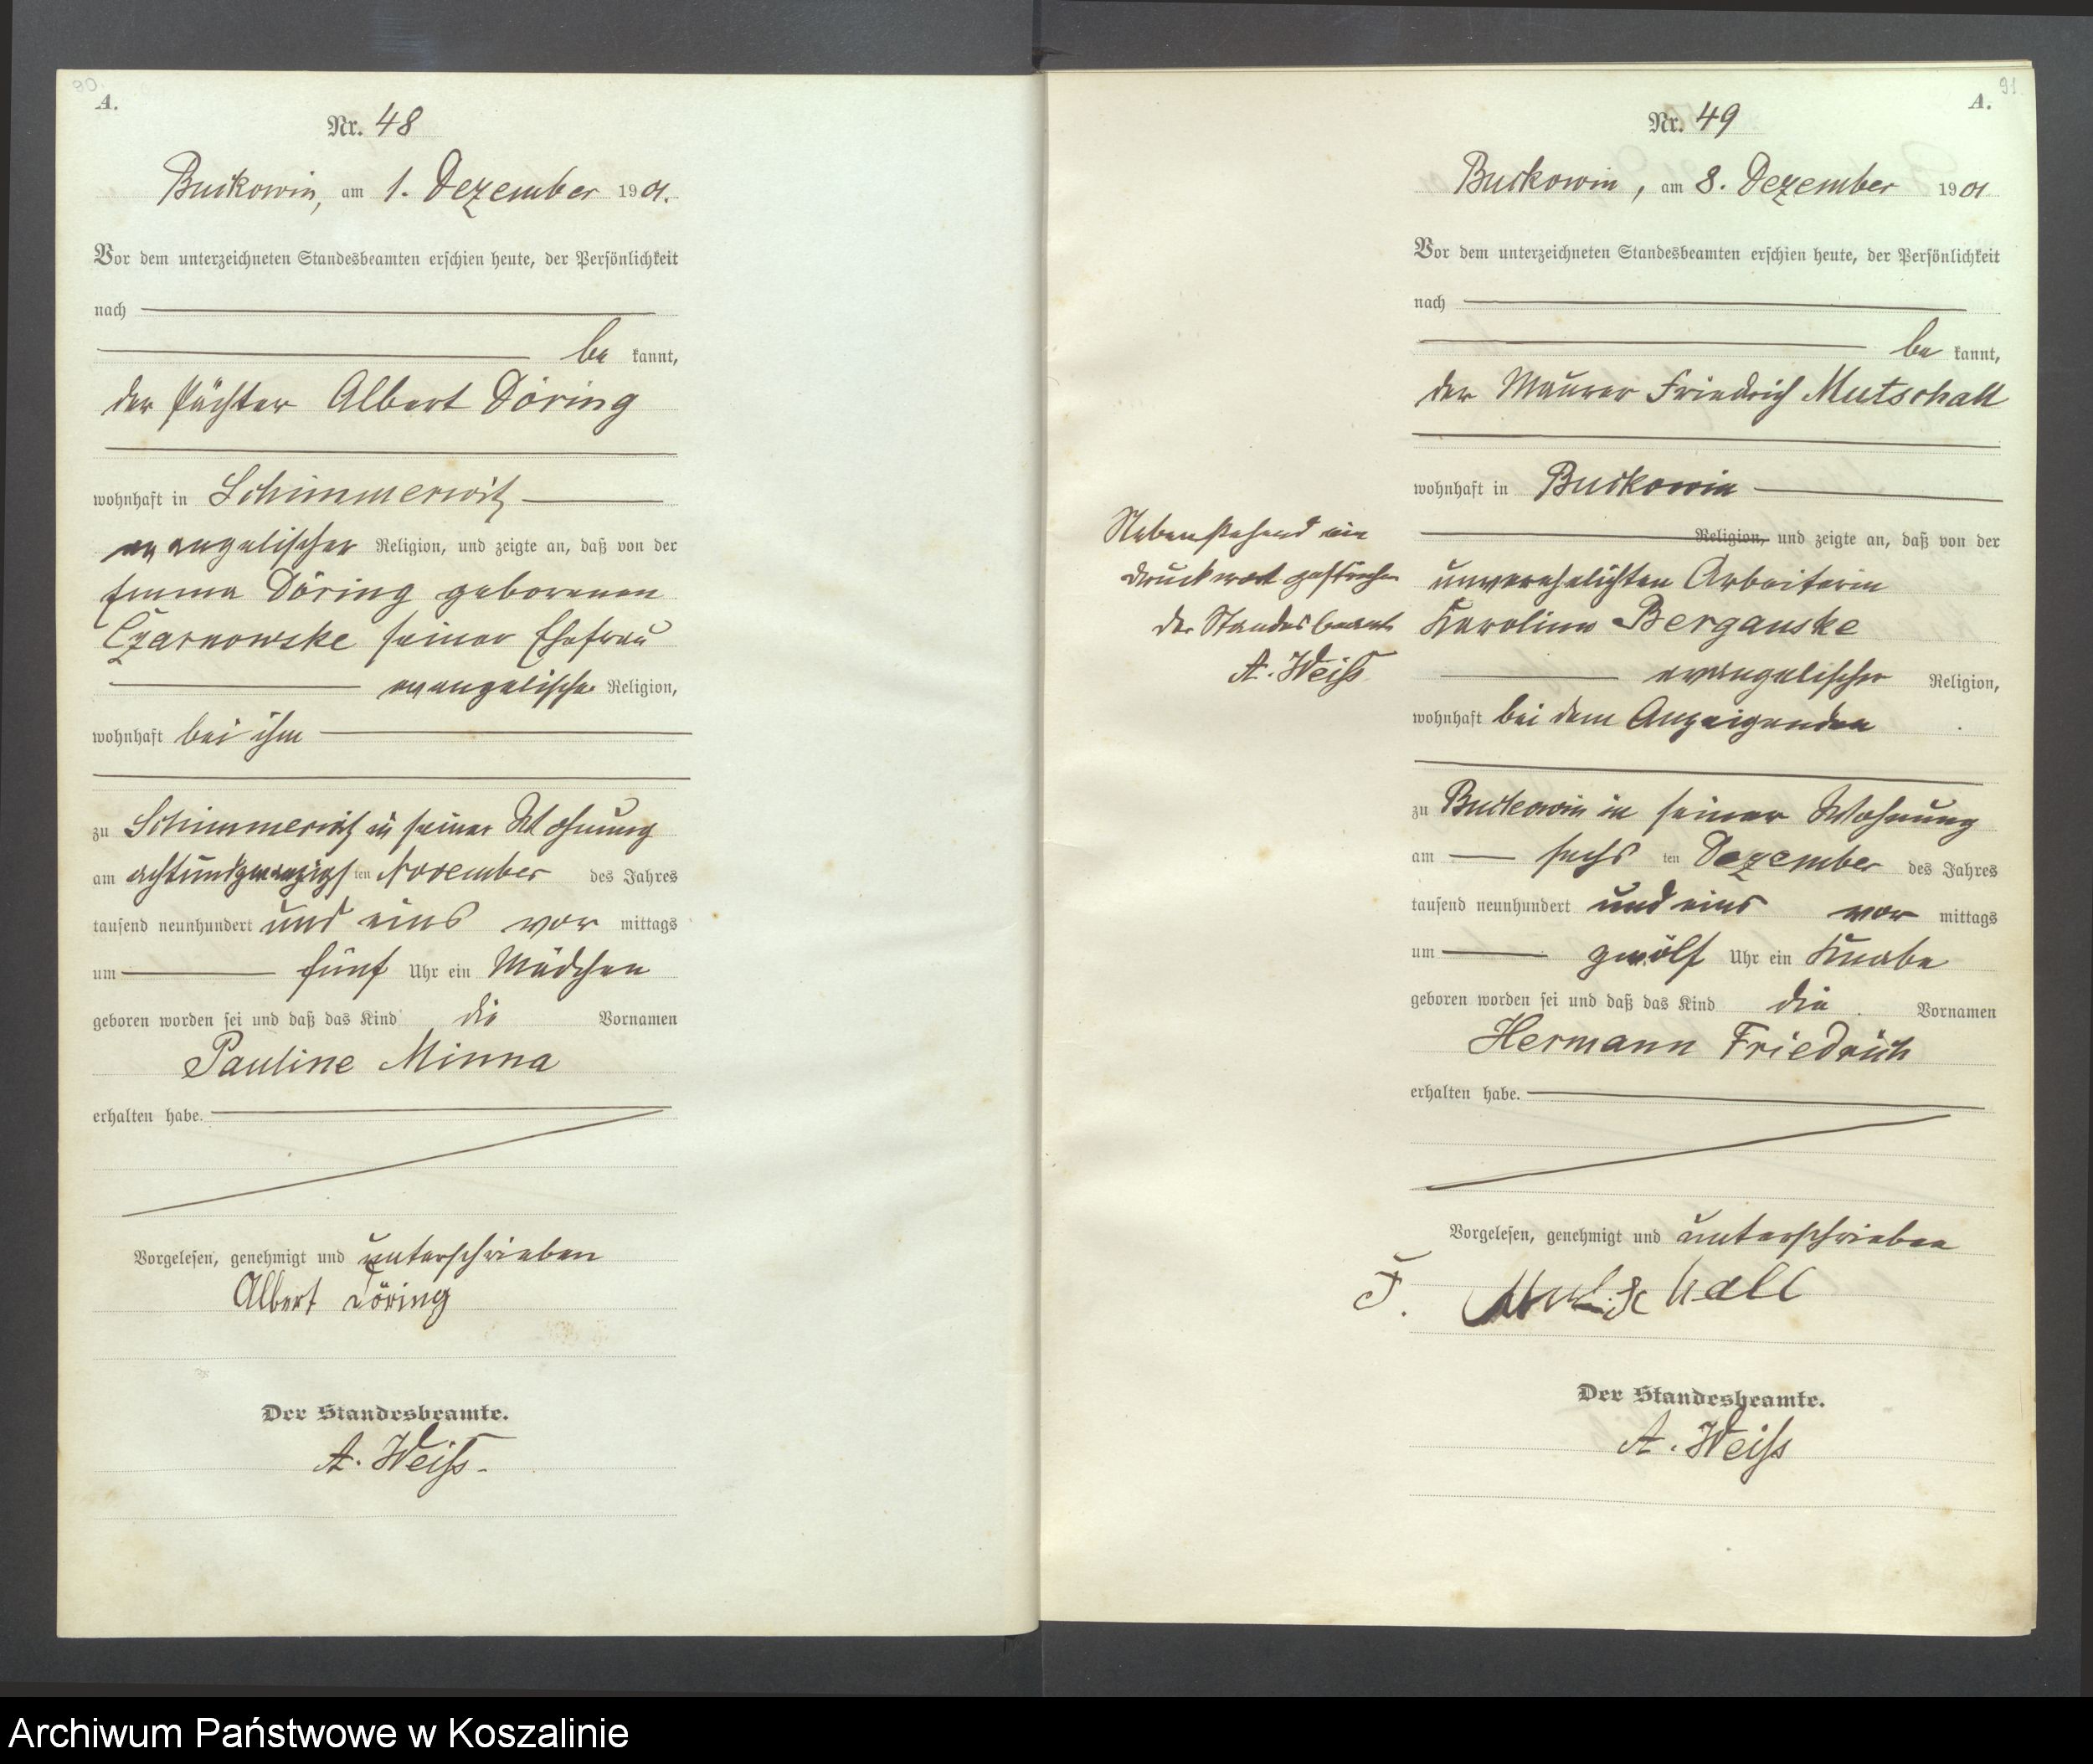 90.
A.
Nr. 48
Buckowin, am 1. Dezember 1901.
Vor dem unterzeichneten Standesbeamten erschien heute, der Persönlichkeit
nach
be kannt,
der Pächter Albert Döring
wohnhaft in Schimmerwitz
evangelischer Religion, und zeigte an, daß von der
Emma Döring geborenen
Czarnowske seiner Ehefrau
evangelischer Religion,
wohnhaft bei ihm
zu Schimmerwitz in seiner Wohnung
am achtundzwanzigsten November des Jahres
tausend neunhundert und eins vor mittags
um fünf Uhr ein Mädchen
geboren worden sei und daß das Kind die Vornamen
Pauline Minna
erhalten habe.
Vorgelesen, genehmigt und unterschrieben
Albert Döring
Der Standesbeamte.
A. Weiß.
91.
A.
Nr. 49
Buckowin, am 8. Dezember 1901
Vor dem unterzeichneten Standesbeamten erschien heute, der Persönlichkeit
nach
be kannt,
der Maurer Friedrich Mutschall
wohnhaft in Buckowin
Religion, und zeigte an, daß von der
unverehelichten Arbeiterin
Karoline Berganske
evangelischer Religion,
wohnhaft bei dem Anzeigenden
zu Buckowin in seiner Wohnung
am sechs ten Dezember des Jahres
tausend neunhundert und eins vor mittags
um zwölf Uhr ein Knabe
geboren worden sei und daß das Kind die Vornamen
Hermann Friedrich
erhalten habe.
Vorgelesen, genehmigt und unterschrieben
F. Mutschall
Der Standesbeamte.
A. Weiß
Nebenstehend ein
Druckwort gestrichen
Der Standesbeamte
A. Weiß
Archiwum Państwowe w Koszalinie